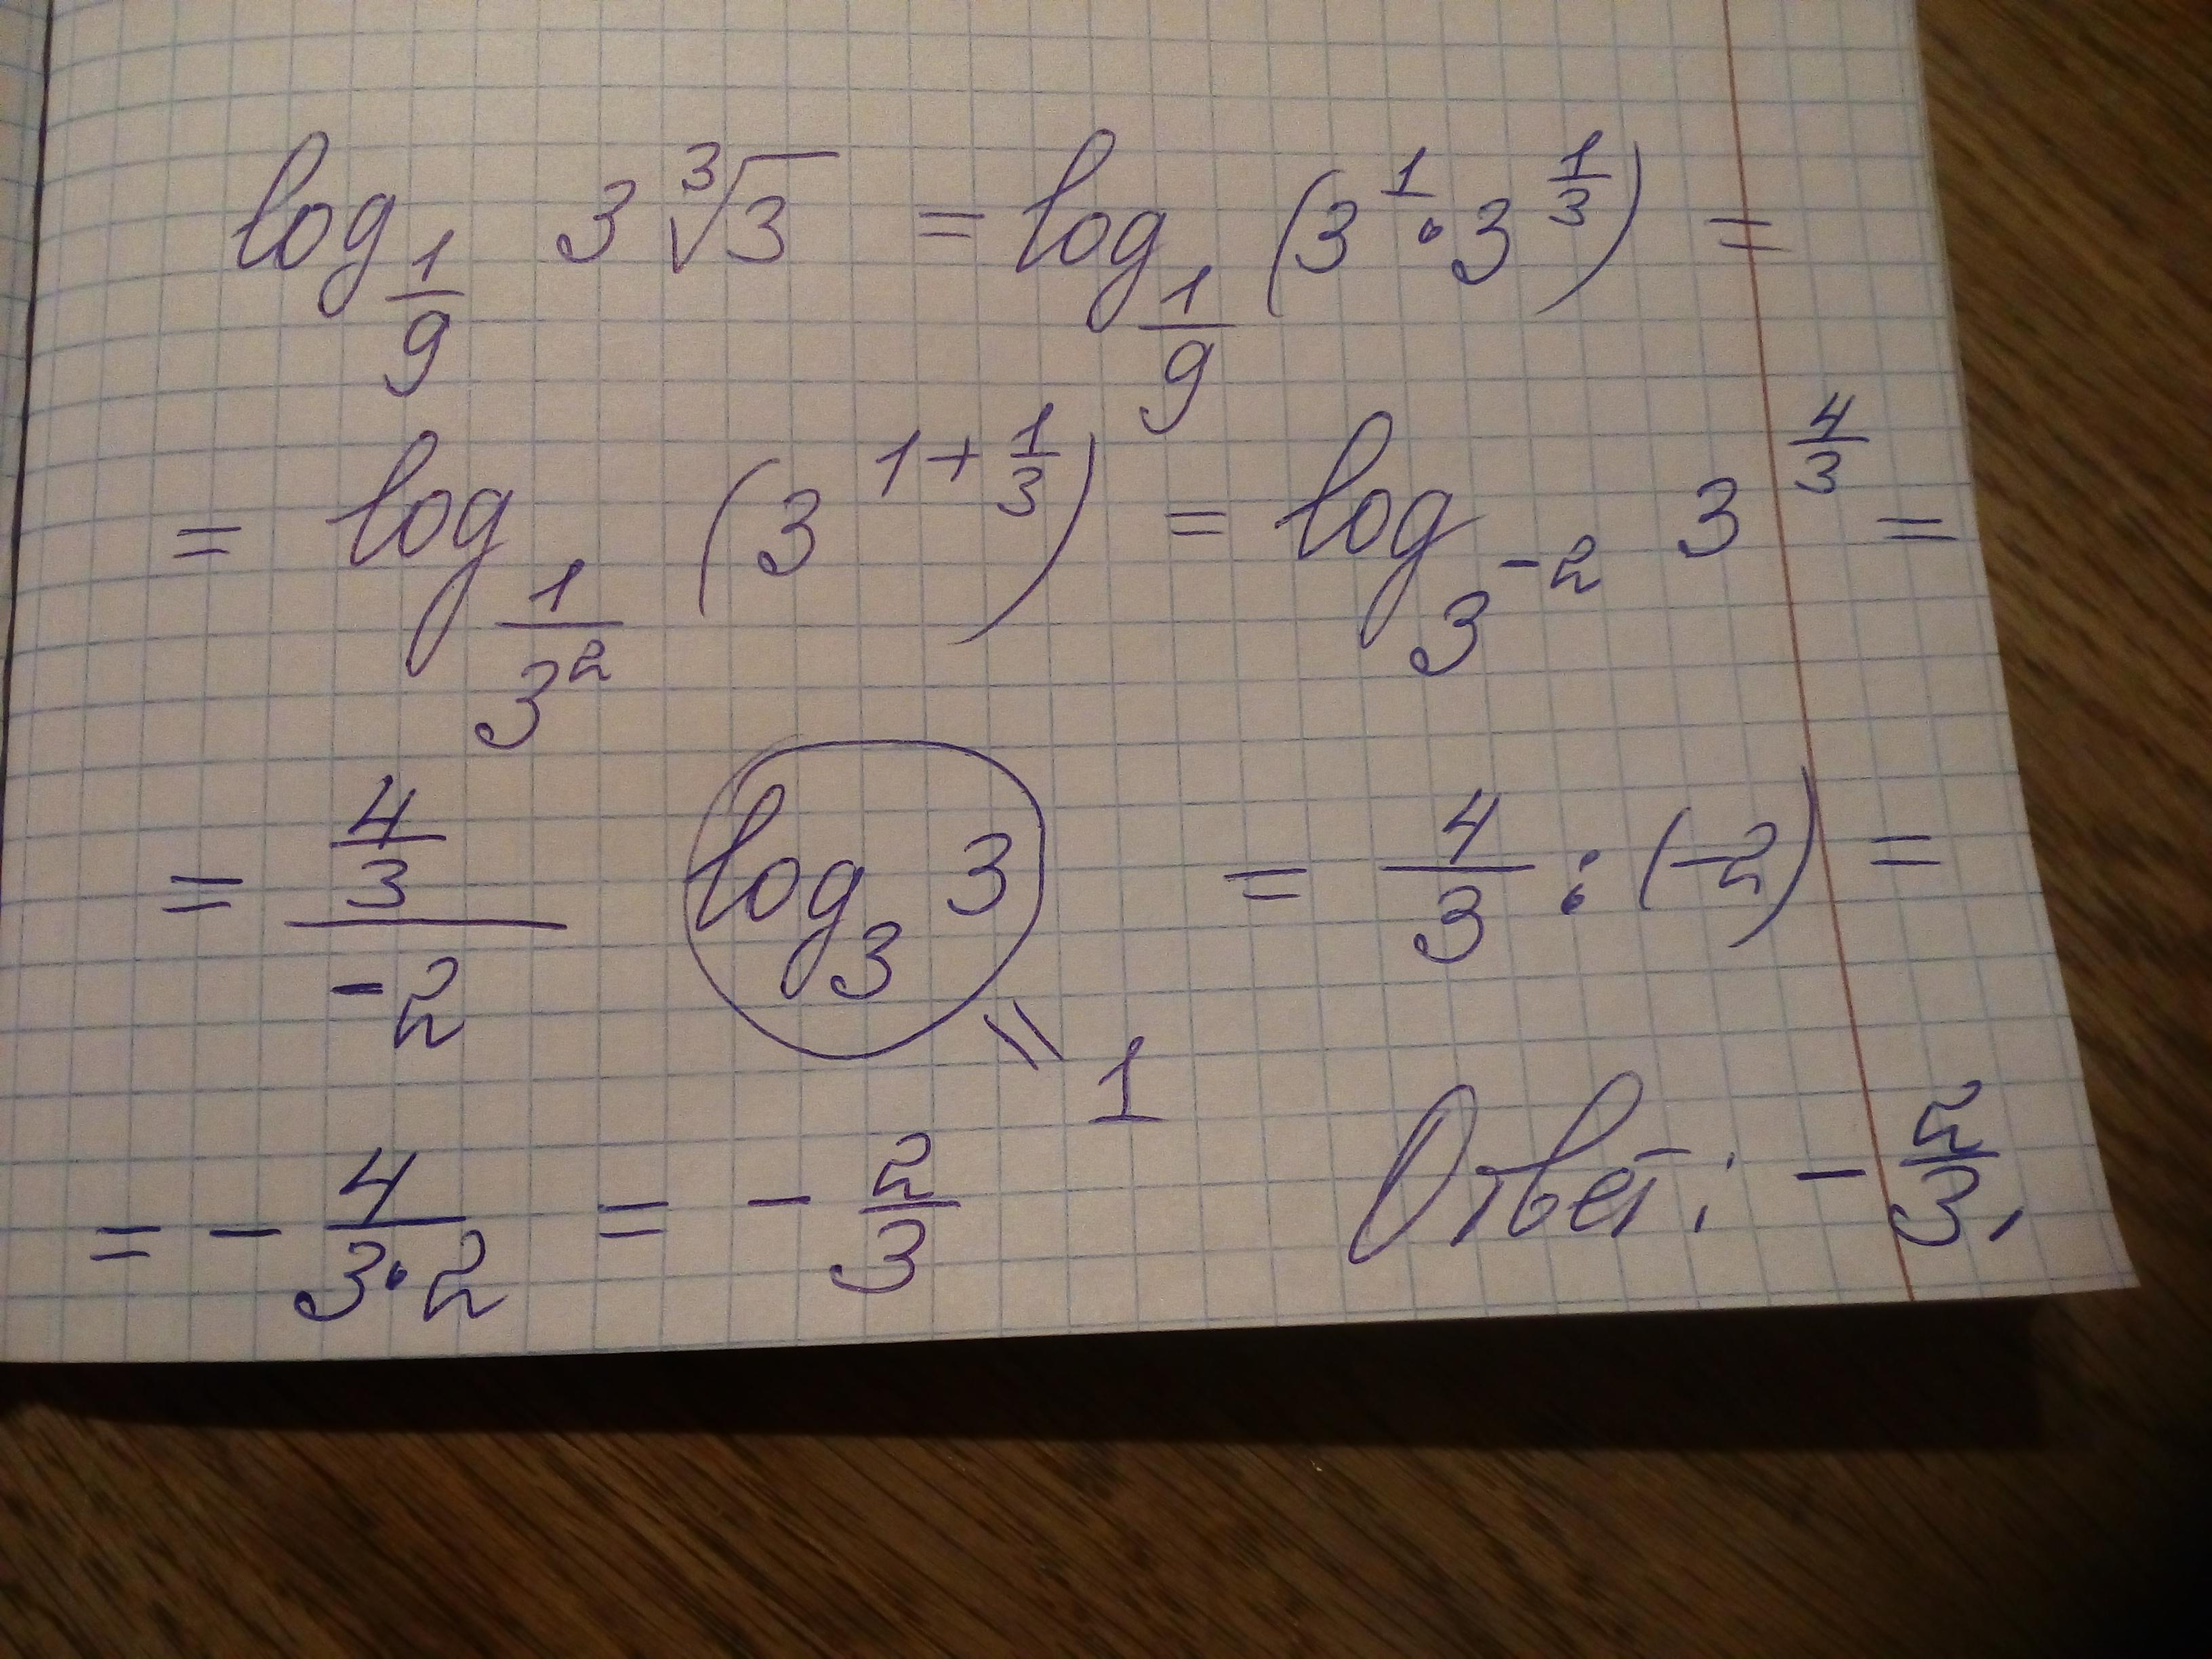 log_{1/9} 3∛3 = log_{1/9} (3^1 · 3^{1/3}) =
= log_{1/3^2} (3^{1+1/3}) = log_{3^{-2}} 3^{4/3} =
= (4/3)/(-2) log_3 3 = 4/3 : (-2) =
= 1
= - 4/(3·2) = - 2/3 Ответ: - 2/3.